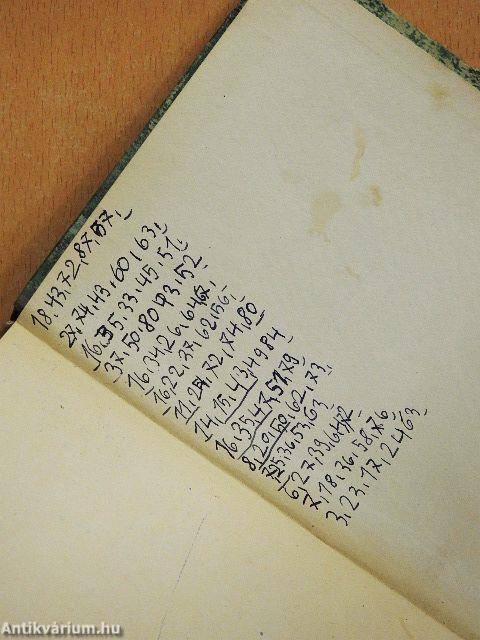 18,43,72,87,57,
27,74,43,60,63,
16,35,33,45,51
37,50,80,43,52
16,34,26,64,67,
16,22,37,62,56,
11,25,72,74,80
14,15,43,49,84
16,35,47,57,79
8,20,50,62,73
7,25,36,53,63
6,27,39,64,72
7,18,36,58,76
3,23,17,24,63
Antikvárium.hu